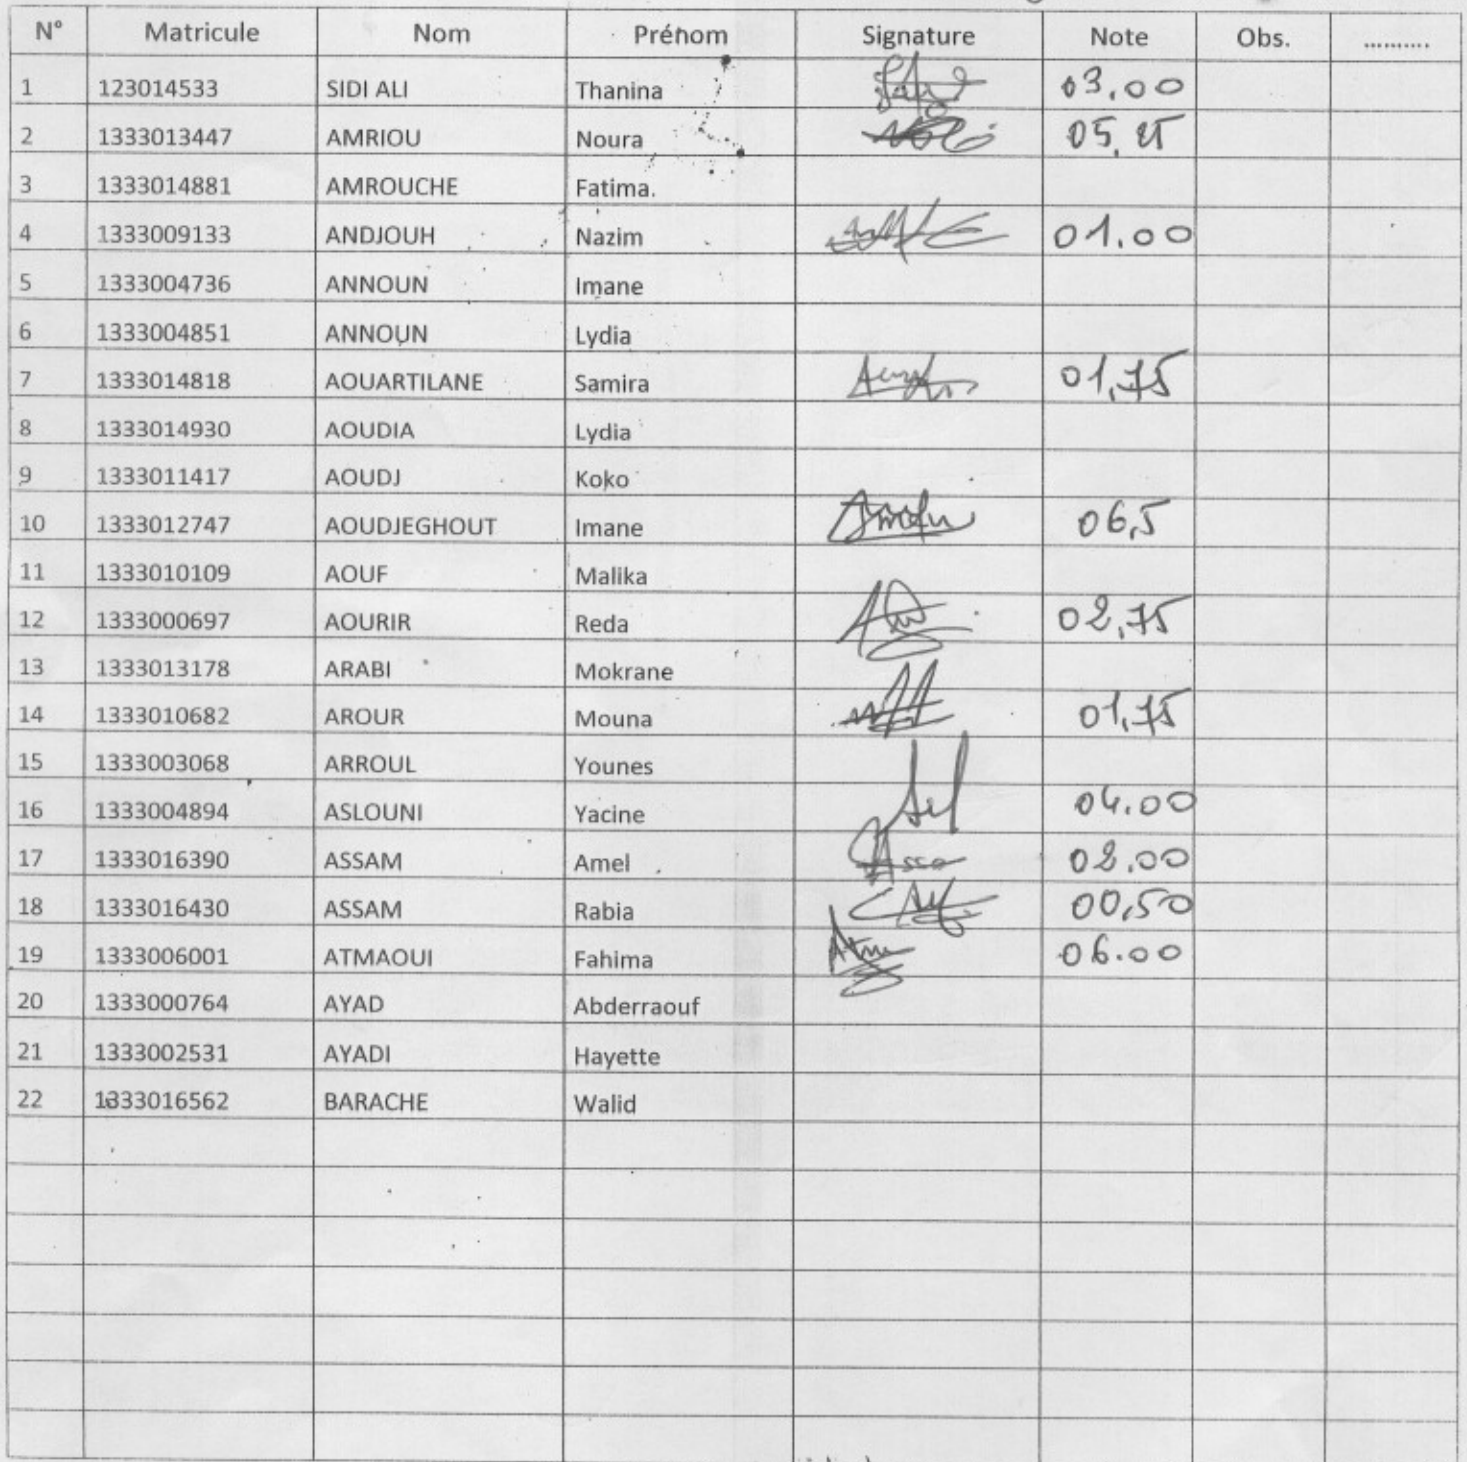 N° Matricule Nom Prénom Signature Note Obs. ..........
1 123014533 SIDI ALI Thanina 03,00
2 1333013447 AMRIOU Noura 05,25
3 1333014881 AMROUCHE Fatima.
4 1333009133 ANDJOUH Nazim 01.00
5 1333004736 ANNOUN Imane
6 1333004851 ANNOUN Lydia
7 1333014818 AOUARTILANE Samira 01,75
8 1333014930 AOUDIA Lydia
9 1333011417 AOUDJ Koko
10 1333012747 AOUDJEGHOUT Imane 06,5
11 1333010109 AOUF Malika
12 1333000697 AOURIR Reda 02,75
13 1333013178 ARABI Mokrane
14 1333010682 AROUR Mouna 01,75
15 1333003068 ARROUL Younes
16 1333004894 ASLOUNI Yacine 04.00
17 1333016390 ASSAM Amel 02.00
18 1333016430 ASSAM Rabia 00,50
19 1333006001 ATMAOUI Fahima 06.00
20 1333000764 AYAD Abderraouf
21 1333002531 AYADI Hayette
22 1333016562 BARACHE Walid